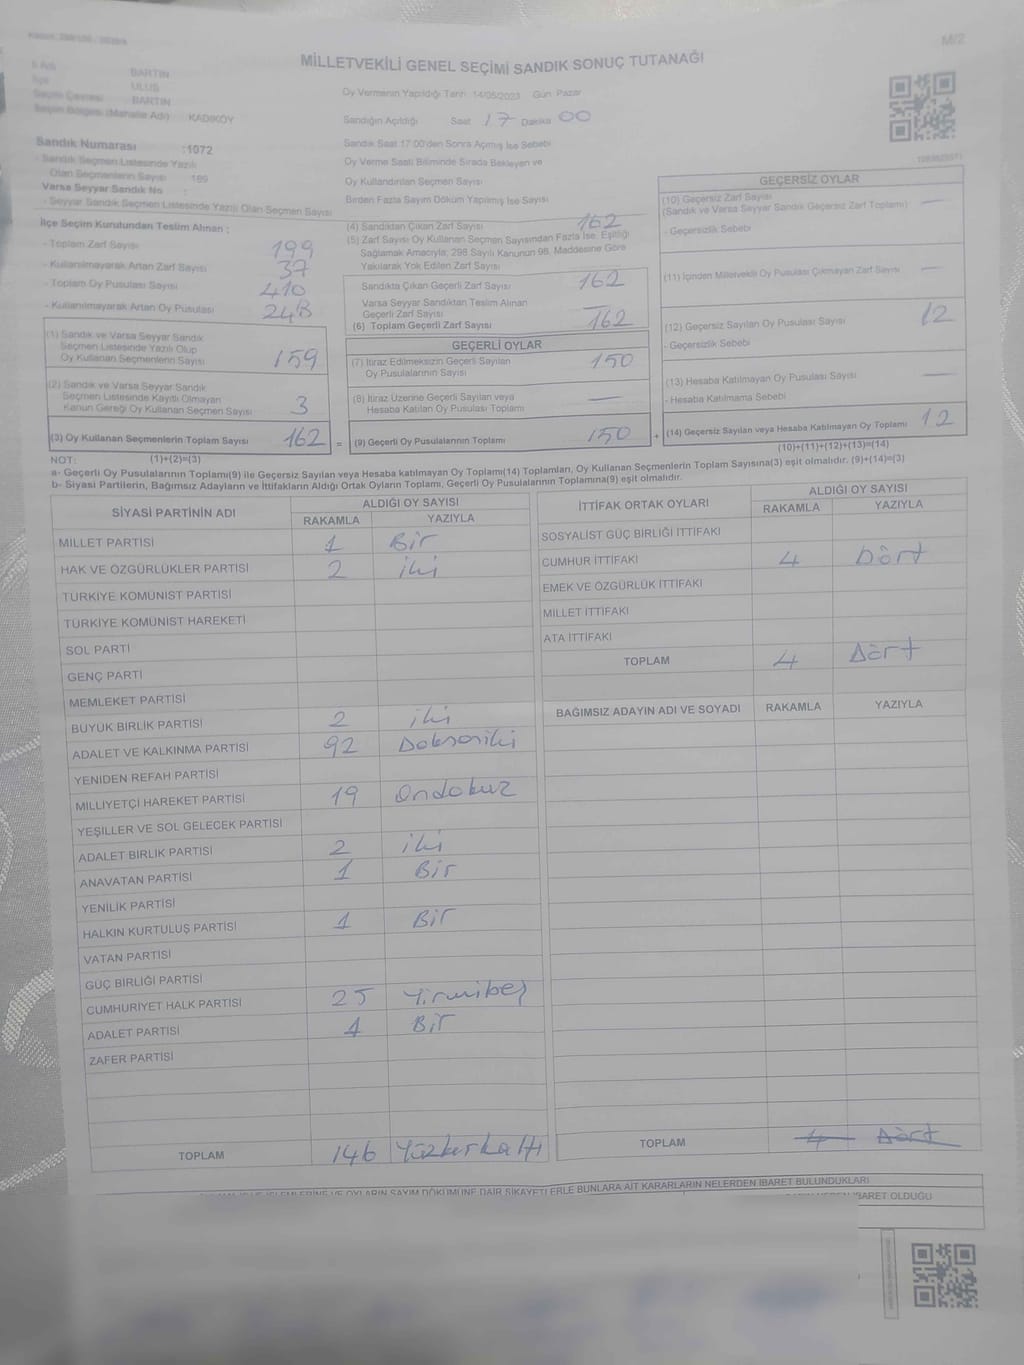 M/2
MİLLETVEKİLİ GENEL SEÇİMİ SANDIK SONUÇ TUTANAĞI
BARTIN
ULUS
Seçim Çevresi BARTIN
Seçim Bölgesi (Mahalle Adı) : KADIKÖY
Oy Vermenin Yapıldığı Tarih 14/05/2023 Gün Pazar
Sandığın Açıldığı Saat 17 Dakika 00
Sandık Numarası :1072
- Sandık Seçmen Listesinde Yazılı
Olan Seçmenlerin Sayısı 189
Varsa Seyyar Sandık No :
- Seyyar Sandık Seçmen Listesinde Yazılı Olan Seçmen Sayısı
Sandık Saat 17.00'den Sonra Açılmış İse Sebebi
Oy Verme Saati Bitiminde Sırada Bekleyen ve
Oy Kullandırılan Seçmen Sayısı
Birden Fazla Sayım Döküm Yapılmış İse Sayısı
İlçe Seçim Kurulundan Teslim Alınan :
- Toplam Zarf Sayısı 199
- Kullanılmayarak Artan Zarf Sayısı 37
- Toplam Oy Pusulası Sayısı 410
- Kullanılmayarak Artan Oy Pusulası 248
(1) Sandık ve Varsa Seyyar Sandık
Seçmen Listesinde Yazılı Olup
Oy Kullanan Seçmenlerin Sayısı 159
(2) Sandık ve Varsa Seyyar Sandık
Seçmen Listesinde Kayıtlı Olmayan
Kanun Gereği Oy Kullanan Seçmen Sayısı 3
(3) Oy Kullanan Seçmenlerin Toplam Sayısı 162
(1)+(2)=(3)
(4) Sandıktan Çıkan Zarf Sayısı 162
(5) Zarf Sayısı Oy Kullanan Seçmen Sayısından Fazla İse, Eşitliği
Sağlamak Amacıyla, 298 Sayılı Kanunun 98. Maddesine Göre
Yakılarak Yok Edilen Zarf Sayısı
Sandıkta Çıkan Geçerli Zarf Sayısı 162
Varsa Seyyar Sandıktan Teslim Alınan
Geçerli Zarf Sayısı —
(6) Toplam Geçerli Zarf Sayısı 162
GEÇERLİ OYLAR
(7) İtiraz Edilmeksizin Geçerli Sayılan
Oy Pusulalarının Sayısı 150
(8) İtiraz Üzerine Geçerli Sayılan veya
Hesaba Katılan Oy Pusulası Toplamı —
= (9) Geçerli Oy Pusulalarının Toplamı 150
GEÇERSİZ OYLAR
(10) Geçersiz Zarf Sayısı
(Sandık ve Varsa Seyyar Sandık Geçersiz Zarf Toplamı) —
- Geçersizlik Sebebi
(11) İçinden Milletvekili Oy Pusulası Çıkmayan Zarf Sayısı —
(12) Geçersiz Sayılan Oy Pusulası Sayısı 12
- Geçersizlik Sebebi
(13) Hesaba Katılmayan Oy Pusulası Sayısı —
- Hesaba Katılmama Sebebi
+ (14) Geçersiz Sayılan veya Hesaba Katılmayan Oy Toplamı 12
(10)+(11)+(12)+(13)=(14)
NOT:
a- Geçerli Oy Pusulalarının Toplamı(9) ile Geçersiz Sayılan veya Hesaba katılmayan Oy Toplamı(14) Toplamları, Oy Kullanan Seçmenlerin Toplam Sayısına(3) eşit olmalıdır. (9)+(14)=(3)
b- Siyasi Partilerin, Bağımsız Adayların ve İttifakların Aldığı Ortak Oyların Toplamı, Geçerli Oy Pusulalarının Toplamına(9) eşit olmalıdır.
SİYASİ PARTİNİN ADI ALDIĞI OY SAYISI
RAKAMLA YAZIYLA
MİLLET PARTİSİ 1 Bir
HAK VE ÖZGÜRLÜKLER PARTİSİ 2 iki
TÜRKİYE KOMÜNİST PARTİSİ
TÜRKİYE KOMÜNİST HAREKETİ
SOL PARTİ
GENÇ PARTİ
MEMLEKET PARTİSİ
BÜYÜK BİRLİK PARTİSİ 2 iki
ADALET VE KALKINMA PARTİSİ 92 Doksaniki
YENİDEN REFAH PARTİSİ
MİLLİYETÇİ HAREKET PARTİSİ 19 Ondokuz
YEŞİLLER VE SOL GELECEK PARTİSİ
ADALET BİRLİK PARTİSİ 2 iki
ANAVATAN PARTİSİ 1 Bir
YENİLİK PARTİSİ
HALKIN KURTULUŞ PARTİSİ 1 Bir
VATAN PARTİSİ
GÜÇ BİRLİĞİ PARTİSİ
CUMHURİYET HALK PARTİSİ 25 Yirmibeş
ADALET PARTİSİ 1 Bir
ZAFER PARTİSİ
TOPLAM 146 Yüzkırkaltı
İTTİFAK ORTAK OYLARI ALDIĞI OY SAYISI
RAKAMLA YAZIYLA
SOSYALİST GÜÇ BİRLİĞİ İTTİFAKI
CUMHUR İTTİFAKI 4 Dört
EMEK VE ÖZGÜRLÜK İTTİFAKI
MİLLET İTTİFAKI
ATA İTTİFAKI
TOPLAM 4 Dört
BAĞIMSIZ ADAYIN ADI VE SOYADI RAKAMLA YAZIYLA
TOPLAM 4 Dört
OYLARIN SAYIM DÖKÜMÜNE DAİR ŞİKAYETLERLE BUNLARA AİT KARARLARIN NELERDEN İBARET BULUNDUKLARI
İBARET OLDUĞU